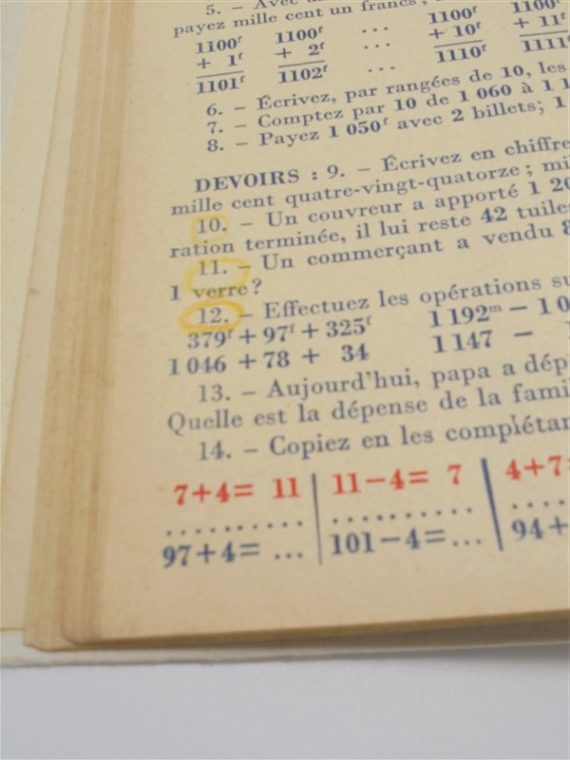 5. – Avec
payez mille cent un francs,
1100ᶠ 1100ᶠ ... 1100ᶠ 1100ᶠ
+ 1ᶠ + 2ᶠ ... + 10ᶠ + 11ᶠ
1101ᶠ 1102ᶠ ... 1110ᶠ 1111ᶠ
6. – Écrivez, par rangées de 10, les
7. – Comptez par 10 de 1 060 à 1 1
8. – Payez 1 050ᶠ avec 2 billets; 1
DEVOIRS : 9. – Écrivez en chiffre
mille cent quatre-vingt-quatorze; mi
10. – Un couvreur a apporté 1 20
ration terminée, il lui reste 42 tuile
11. – Un commerçant a vendu 8
1 verre?
12. – Effectuez les opérations su
379ᶠ + 97ᶠ + 325ᶠ 1 192ᵐ – 1 0
1 046 + 78 + 34 1 147 –
13. – Aujourd'hui, papa a dép
Quelle est la dépense de la fami
14. – Copiez en les complétan
7+4= 11 11–4= 7 4+7=
.......... .......... ....
97+4= ... 101–4=... 94+